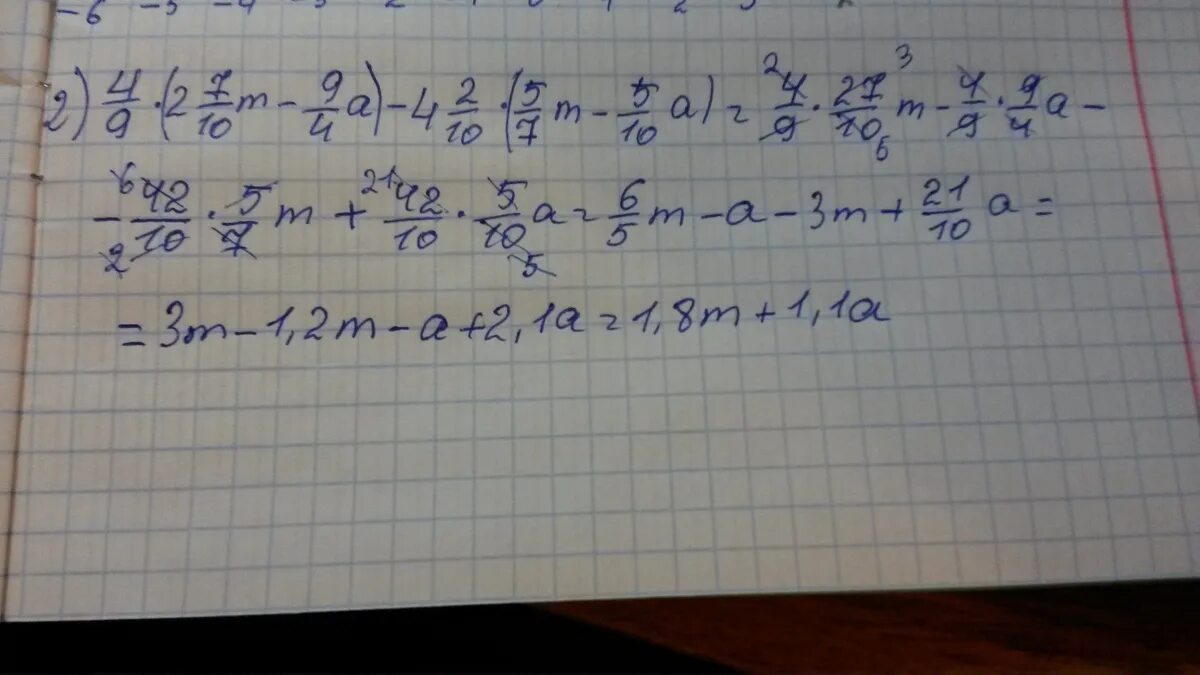 -6 -5 -4 -3 2
2) 4/9 · (2 7/10 m - 9/4 a) - 4 2/10 · (5/7 m - 5/10 a) = 2 4/9 · 27/10 3 m - 4/9 · 9/4 a - 6
- 6 42/10 · 5/7 m + 21 42/10 · 5/10 a = 6/5 m - a - 3m + 21/10 a = 2 5
= 3m - 1,2m - a + 2,1a = 1,8m + 1,1a